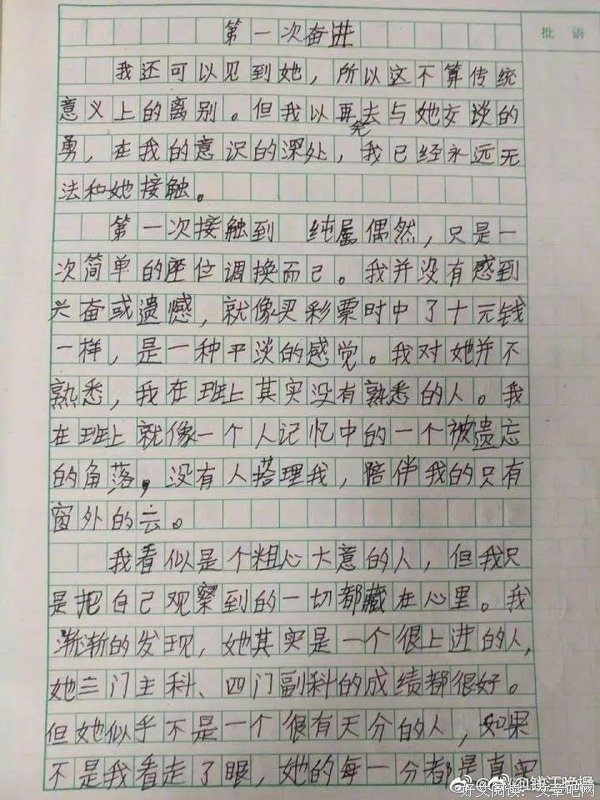 批语
第一次奋进
我还可以见到她，所以这不算传统
意义上的离别。但我以再去与她交谈的
勇，在我的意识的深处，我已经永远无
法和她接触。
第一次接触到 纯属偶然，只是一
次简单的座位调换而己。我并没有感到
兴奋或遗憾，就像买彩票时中了十元钱
一样，是一种平淡的感觉。我对她并不
熟悉，我在班上其实没有熟悉的人。我
在班上就像一个人记忆中的一个被遗忘
的角落，没有人搭理我，陪伴我的只有
窗外的云。
我看似是个粗心大意的人，但我只
是把自己观察到的一切都藏在心里。我
渐渐的发现，她其实是一个很上进的人，
她三门主科、四门副科的成绩都很好。
但她似乎不是一个很有天分的人，如果
不是我看走了眼，她的每一分都是真
@钱江晚报
好文阅读：文章吧网